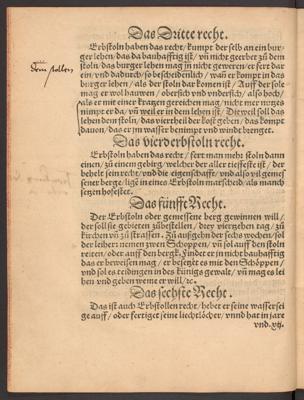 Das Dritte recht.
Erbstoln haben das recht/ kumpt der selb an ein bur
ger lehen/ das da bauhafftig ist/ vñ nicht geerbet zu dem
stoln/ das burger lehen mag jn nicht geweren/ er fert dar
ein/ vnd dadurch/ so bescheidenlich/ wañ er kompt in das
burger lehen/ als der stoln dar komen ist/ Auff der sole
mag er wol hauwen/ obersich vnd vndersich/ also hoch/
als er mit einer kratzen gereichen mag/ nicht mer nutzes
nimpt er da/ vñ weil er in dem lehen ist/ Die weil soll das
lehen dem stoln/ das viertheil der kost geben/ das kompt
dauon/ das er im wasser benimpt vnd windt brenget.
Dem stollen
Das vierd erbstoln recht.
Erbstoln haben das recht/ fert man mehr stoln dann
einen/ zu einem gebirg/ welcher der aller tieffeste ist/ der
behelt sein recht/ vnd die eigenschafft/ vnd als vil gemes
sener berge/ lige in eines Erbstoln marscheid/ als manch
setzen hofestet.
Das fünffte Recht.
Der Erbstoln oder gemessene berg gewinnen will/
der soll sie gebieten zübestellen/ bey viertzehen tag/ zü
kirchen vñ zü strassen. Zü außgehn der sechs wochen/ sol
der leiher: nemen zwen Schoppen/ vñ sol auff den stoln
reiten/ oder auff den bergk/ Findet er jn nicht bauhafftig
das er beweisen mag/ er besetzt es mit den Schöppen/
vnd sol es teidingen in des künigs gewalt/ vñ mag es lei
hen vnd geben weme er will/ ꝛc.
Das sechste Recht.
Das ist auch Erbstollen recht/ heber er seine wasser sei
ge auff/ oder fertiget seine liechtlöcher/ vnnd hat in jare
vnd. vij.